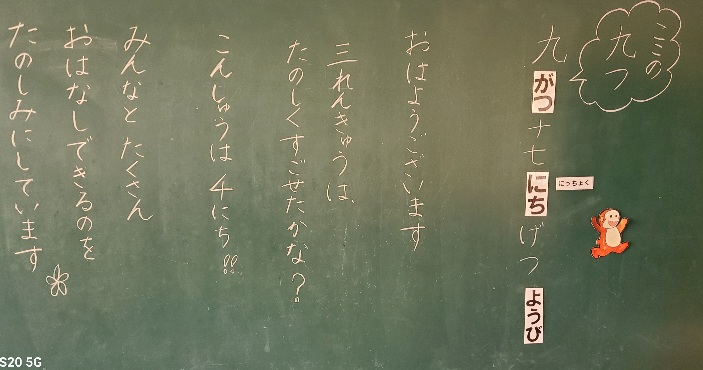 ここの
九つ
九がつ十七にちげつようび
にっちょく
おはようございます
三れんきゅうは、
たのしくすごせたかな？
こんしゅうは 4にち!!
みんなと たくさん
おはなしできるのを
たのしみにしています
S20 5G